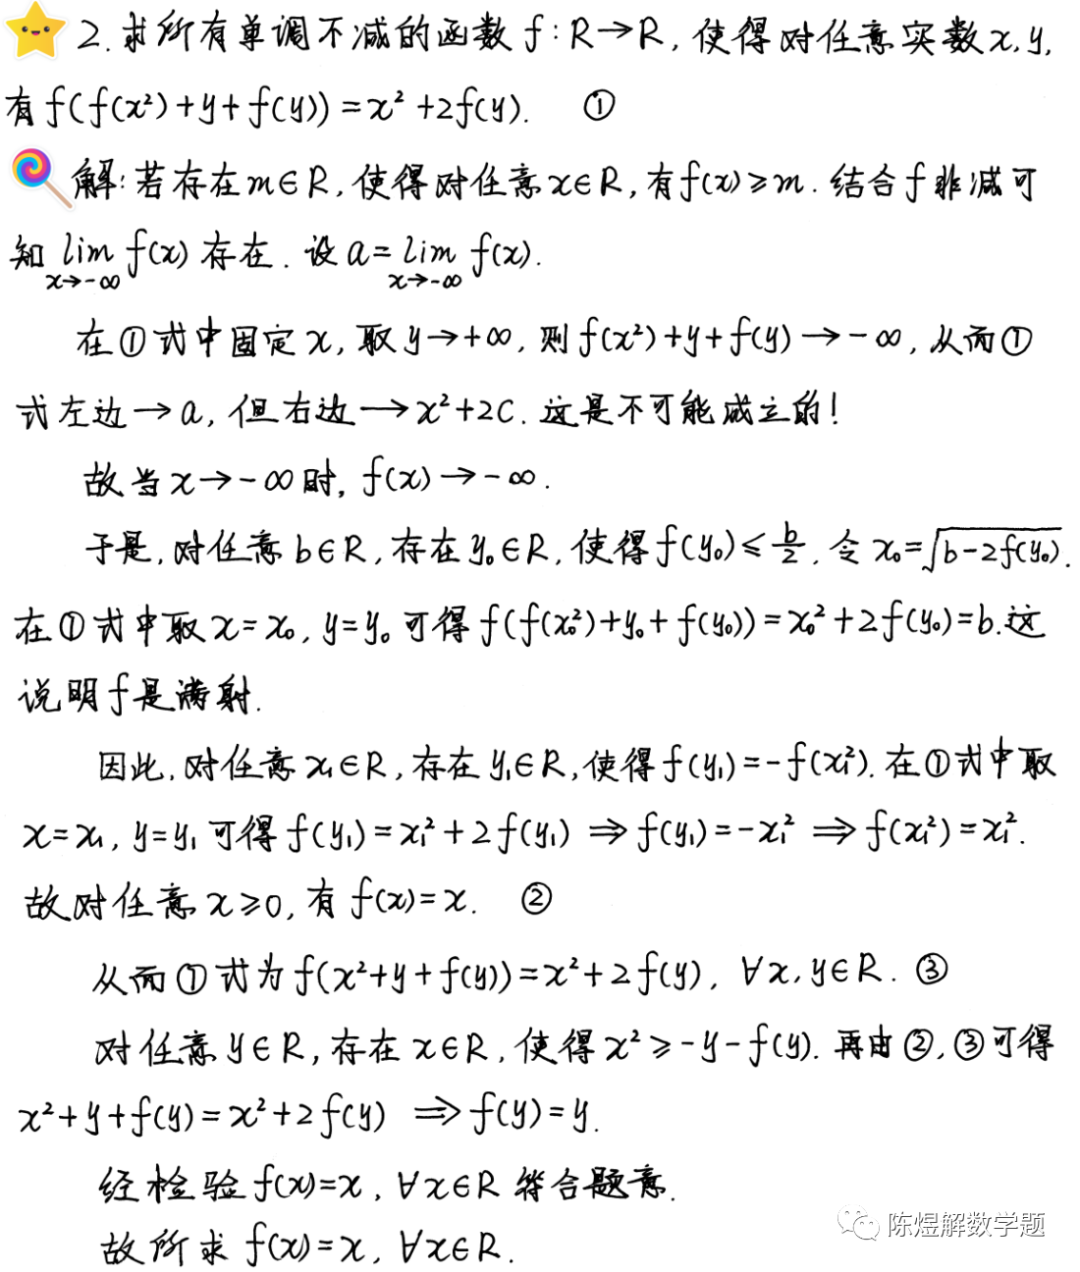 2. 求所有单调不减的函数 f: R→R, 使得对任意实数 x, y,
有 f(f(x²)+y+f(y)) = x²+2f(y). ①
解: 若存在 m∈R, 使得对任意 x∈R, 有 f(x)≥m. 结合 f 非减可
知 lim f(x) 存在. 设 a = lim f(x).
x→-∞ x→-∞
在①式中固定 x, 取 y→+∞, 则 f(x²)+y+f(y)→-∞, 从而①
式左边→a, 但右边→x²+2C. 这是不可能成立的!
故当 x→-∞ 时, f(x)→-∞.
于是, 对任意 b∈R, 存在 y₀∈R, 使得 f(y₀)≤b/2. 令 x₀=√(b-2f(y₀)).
在①式中取 x=x₀, y=y₀ 可得 f(f(x₀²)+y₀+f(y₀)) = x₀²+2f(y₀)=b. 这
说明 f 是满射.
因此, 对任意 x₁∈R, 存在 y₁∈R, 使得 f(y₁)=-f(x₁²). 在①式中取
x=x₁, y=y₁ 可得 f(y₁)=x₁²+2f(y₁) ⇒ f(y₁)=-x₁² ⇒ f(x₁²)=x₁².
故对任意 x≥0, 有 f(x)=x. ②
从而①式为 f(x²+y+f(y))=x²+2f(y), ∀x, y∈R. ③
对任意 y∈R, 存在 x∈R, 使得 x²≥-y-f(y). 再由②, ③可得
x²+y+f(y)=x²+2f(y) ⇒ f(y)=y.
经检验 f(x)=x, ∀x∈R 符合题意.
故所求 f(x)=x, ∀x∈R.
陈煜解数学题